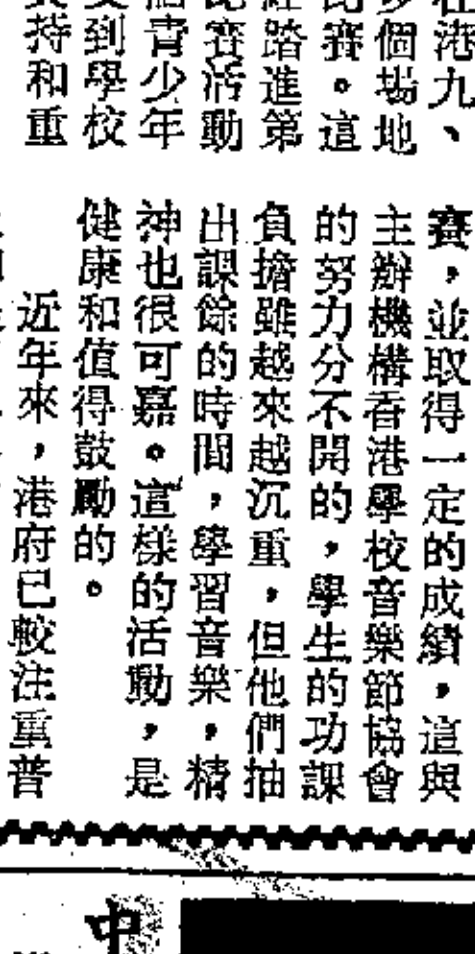 在港九、
個場地
賽。這
踏進第
賽活動
青少年
到學校
持和重
賽，並取得一定的成績，這與
主辦機構香港學校音樂節協會
的努力分不開的，學生的功課
負擔雖越來越沉重，但他們抽
出課餘的時間，學習音樂，精
神也很可嘉。這樣的活動，是
健康和值得鼓勵的。
近年來，港府已較注重普
中